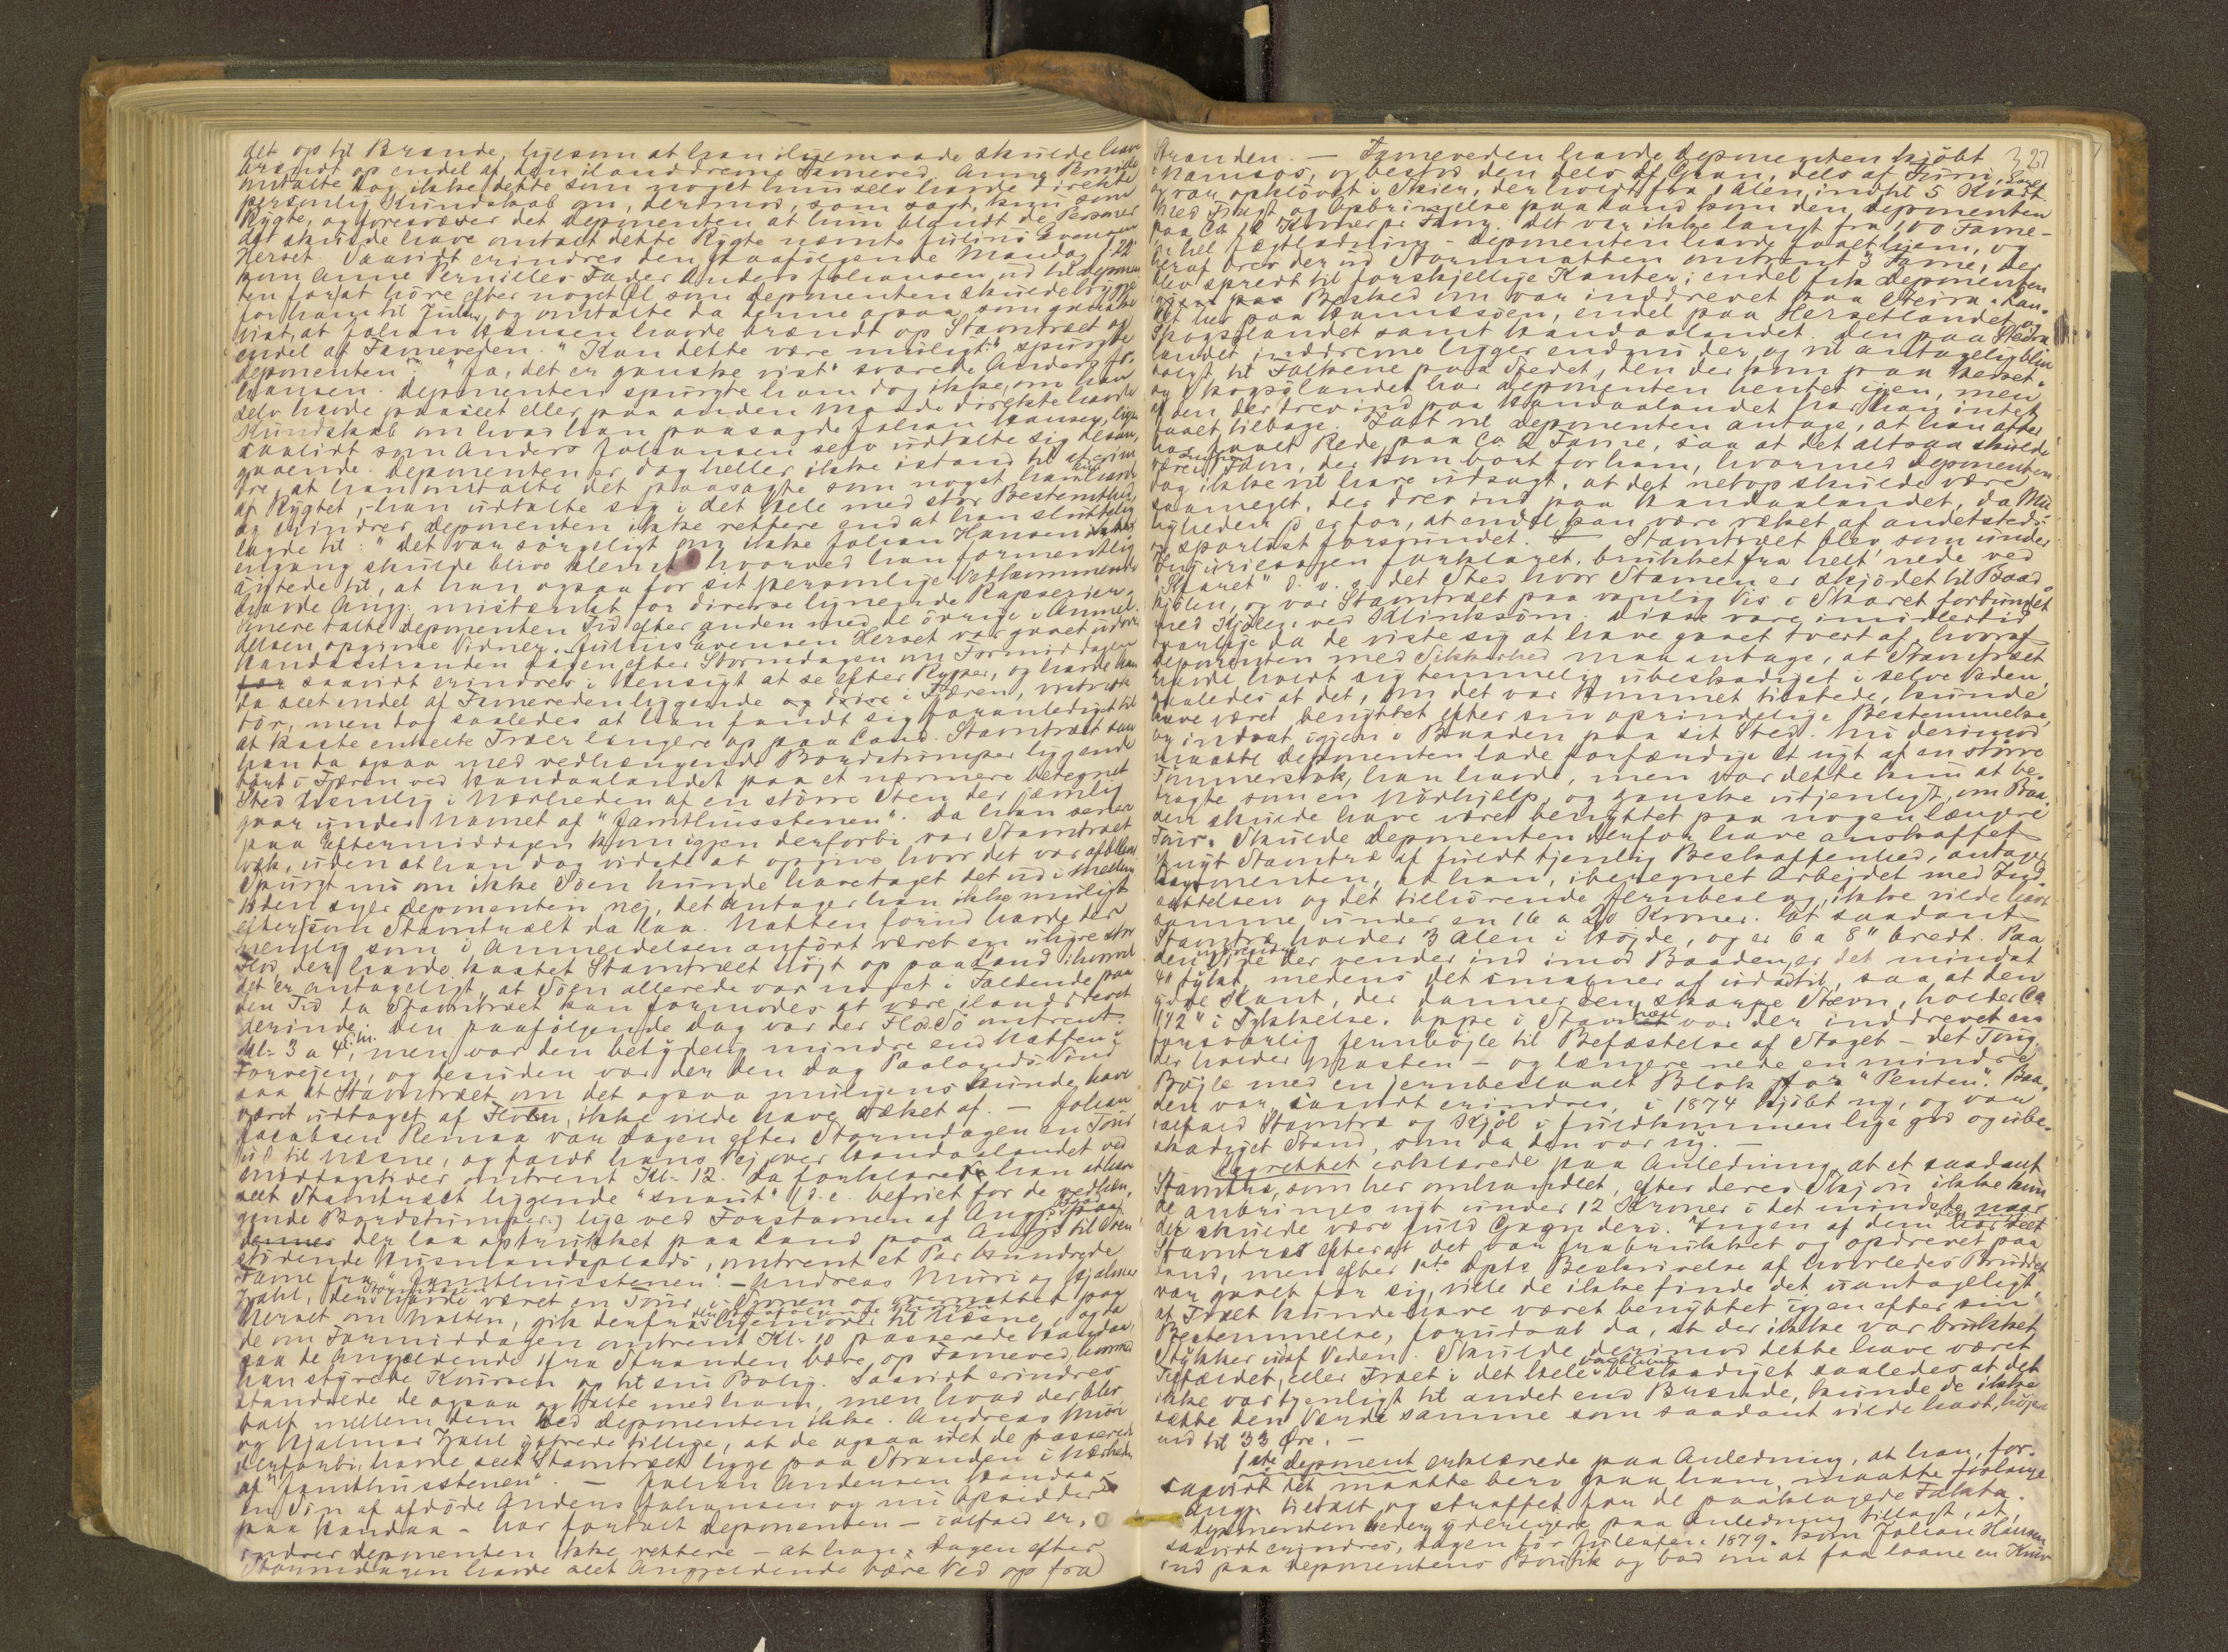 det op til Brænde, ligesom at han iligemaade skulde have
brændt op endel af den ilanddrevne Fameved. Anna Pernille
omtalte dog ikke dette som noget hun selv havde direkte
personlig Kundskab om, derimod, som sagt, kun som
Rygte, og foresvæver det deponenten at hun blandt de Personer
der skulde have omtalt dette Rygte nævnte Julius Evensen
Herset. Saavidt erindres den paafølgende Mandag
kom Anne Pernilles Fader Anders Johansen ud til deponen
ten for at høre efter noget Øl som deponenten skulde brygge
for ham til Julen, og omtalte da denne ogsaa som ganske
vist, at Johan Hansen havde brændt op Stavntræet og
endel af Fameveden. "Kan dette være muligt" spurgte
deponenten. "Ja, det er ganske vist" svarede Anders Jo-
hansen. deponenten spurgte ham dog ikke, om han
selv havde paaseet eller paa anden Maade direkte havde
Kundskab om hvad han paasagde Johan Hansen, lige
saalidt som Anders Johansen selv udtalte sig desan-
gaaende. deponenten er dog heller ikke istand til at erin
dre, at han omtalte det paasagte som noget han kun havde
af Rygtet, – han udtalte sig i det Hele med stor Bestemthed
og erindrer deponenten ikke rettere end at han sluttelig
lagde til: "det var sørgeligt om ikke Johan Hansen
engang skulde blive klemt" hvorved han formentlig
sigtede til, at han ogsaa for sit personlige Vedkommende
havde Angj. mistænkt for diverse lignende Rapserier.
Senere talte deponenten Tid efter anden med de øvrige i Anmel-
delsen opgivne Vidner. Julius Evensen Herset var gaaet udover
Handaastranden dagen efter Stormdagen om Formiddagen
saavidt erindres i Hensigt at se efter Ryper, og havde han
da seet endel af Fameveden liggende i Fjæren, omtrent
tør, men dog saaledes at han fandt sig foranlediget til
at kaste enkelte Træer længere op paa Land. Stavntræet saa
han da ogsaa med vedhængende Bordstumper liggende
tørt i Fjæren ved Handaalandet paa et nærmere betegnet
Sted nemlig i Nærheden af en større Sten der jævnlig
gaar under Navnet af "Jamthusstenen". Da han senere
paa Eftermiddagen kom igjen derforbi var Stavntræet
væk, uden at han dog vidste at opgive hvor det var afblevet
Spurgt nu om ikke Søen kunde have taget det ud i Mellem-
tiden siger deponenten nej, det antager han ikke muligt
eftersom Stavntræet da laa. Natten forud havde der
nemlig som i Anmeldelsen anført været en uhyre stor
Flod, der havde kastet Stavntræet højt op paa Land ihvorvel
det er antageligt, at Søen allerede var noget i Faldende paa
den Tid da Stavntræet kan formodes at være ilanddrevet
derinde. den paafølgende dag var der Flod Sø omtrent
Kl. 3 a 4 E.m. men var den betydelig mindre end Natten i
Forvejen, og desuden var der den dag Paalands Vind
saa at Stavntræet om det ogsaa muligens kunde have
været udtaget af Floden, ikke vilde have rækket af. – Johan
Jacobsen Remaa var dagen efter Stormdagen en Tour
ud til Næsne, og faldt hans Vej over Handaalandet ved
Middagstider omtrent Kl. 12. Da forklarede han at have
seet Stavntræet liggende "snaut" (d.e. befriet for de vedhæn-
gende Bordstumper) lige ved Forstavnen af Angj.s
der laa optrukket paa Land paa Angj.s til Søen
stødende Husmandsplads, omtrent et Par hundrede
Fame fra "Jamthusstenen". – Andreas Muri og Hjalmar
Zahl, der Stormdagen havde været en Tour i og overnattet paa
Herset om Natten, gik derfra den paafølgende Morgen til Næsne, og da
de om Formiddagen omtrent Kl. 10 passerede Handaa,
saa de Angjældende fra Stranden bære op Fameved, hvormed
han styrede Koursen op til sin Bolig. Saavidt erindres
standsede de ogsaa og talte med ham, men hvad der blev
talt mellem dem ved deponenten ikke. Andreas Muri
og Hjalmar Zahl ytrede tillige, at de ogsaa idet de passerede
derforbi, havde seet Stavntræet ligge paa Stranden i Nærheden
af "Jamthusstenen". – Johan Andersen Handaa –
en Søn af afdøde Anders Johansen og nu Opsidder
paa Handaa – har fortalt deponenten – ialfald er-
indrer deponenten ikke rettere – at han dagen efter
Stormdagen havde seet Angjældende bære Ved op fra
Stranden. – Fameveden havde deponenten kjøbt
327
i Namsos, og bestod den dels af Gran, dels af Furu,
og var opkløvet i Skier, der holdt fra 1 Alen indtil 5 Kvart.
Med Fragt og Opbringelse paa Land kom den deponenten
paa Ca 12 Kroner pr Favn. Det var ikke langt fra 100 Fame –
en hel Jægtladning – deponenten havde faaet hjem, og
heraf drev der ud Stormnatten omtrent 3 Fame, der
blev spredt til forskjellige Kanter; endel fik deponenten
Besked om var inddrevet paa Steira-Lan-
det her paa Hannesøen, endel paa Hersetlandet og
Skogslandet samt Handaalandet. Den paa Steira
landet inddrevne ligger endnu der, og vil antagelig blive
solgt til Folkene paa Stedet, den der kom paa Herset-
og Skogslandet har deponenten hentet igjen, men
af den, der drev ind paa Handaalandet har han intet
faaet tilbage. Løst vil deponenten antage, at han atter
har faaet Rede paa Ca 2 Fame, saa at det altsaa skulde
være Favn, der kom bort for ham, hvormed deponenten
dog ikke vil have udsagt, at det netop skulde være
saameget, der drev ind paa Handaalandet, da Mu-
ligheden jo er for, at endel kan være ræket af andetsteds
og sporløst forsvundet. – Stavntræet blev som under
Injuriesagen forklaret, brukket fra helt nede ved
"Skaret" d. v. s. det Sted hvor Stavnen er skjødet til Baad-
kjølen, og var Stavntræet paa vanlig Vis i Skaret forbundet
med Kjølen ved Klinksøm. Disse vare imidlertid
da de viste sig at have gaaet tvert af, hvoraf
deponenten med Sikkerhed maa antage, at Stavntræet
havde holdt sig temmelig ubeskadiget i selve Veden,
saaledes at det, om det var kommet tilstede, kunde
have været benyttet efter sin oprindelige Bestemmelse,
og indsat igjen i Baaden paa sit Sted. Nu derimod
maatte deponenten lade forfærdige et nyt af en større
Tømmerstok, han havde, men var dette kun at be-
tragte som en Nødhjælp, og ganske utjenligt, om Baa-
den skulde have været benyttet paa nogen længere
Tour. Skulde deponenten derfor have anskaffet
nyt Stavntræ af fuldt tjenlig Beskaffenhed, antager
deponenten, at han, iberegnet Arbejdet med Ind-
sættelsen og det tilhørende Jernbeslag, ikke vilde have
samme under en 16 a 20 Kroner. Et saadant
Stavntræ holder 3 Alen i Højde, og er 6 a 8" bredt. Paa
den Side der vender ind imod Baaden, er det mindst
4" tykt, medens det smalner af udadtil, saa at den
ydre Kant, der danner den skarpe Stævn, holder Ca
1/2" i Tykkelse. Oppe i Stavntræet var der inddrevet en
forsvarlig Jernbøjle til Befæstelse af Staget – det Toug
der holder Masten – og længere nede en mindre
Bøjle med en jernbeslaaet Blok for "Penten". Baa-
den var, saavidt erindres, i 1874 kjøbt ny, og var
ialfald Stavntræ og Kjøl i fuldkommen lige god og ube-
skadiget Stand, som da den var ny. –
Lagrettet erklærede paa Anledning, at et saadant
Stavntræ, som her omhandlet, efter deres Skjøn ikke kun
de anbringes nyt under 12 Kroner i det mindste naar
der skulde være fuld Gagn deri. Ingen af dem har seet
Stavntræet efterat det var frabrukket og opdrevet paa
Land, men efter 1ste Dpts Beskrivelse af hvorledes Bruddet
var gaaet for sig, ville de ikke finde det uantageligt,
at Træet kunde have været benyttet igjen efter sin
Bestemmelse, forudsat da, at der ikke var brukket
Stykker ud af Veden. Skulde derimod dette have været
Tilfældet, eller Træet i det hele var bleven beskadiget saaledes at det
ikke var tjenligt til andet end Brænde, kunde de ikke
sætte den Værdi samme som saadant vilde have, højere
end til 33 Øre. –
1ste deponent erklærede paa Anledning, at han, for-
saavidt det maatte bero paa ham, maatte forlange
Angj. tiltalt og straffet for de paaklagede Fakta.
deponenten beder yderligere paa Anledning tillagt, at,
saavidt erindres, dagen før Juleaften 1879 kom Johan Hansen
ind paa deponentens Boutik og bad om at faa laane en Kniv